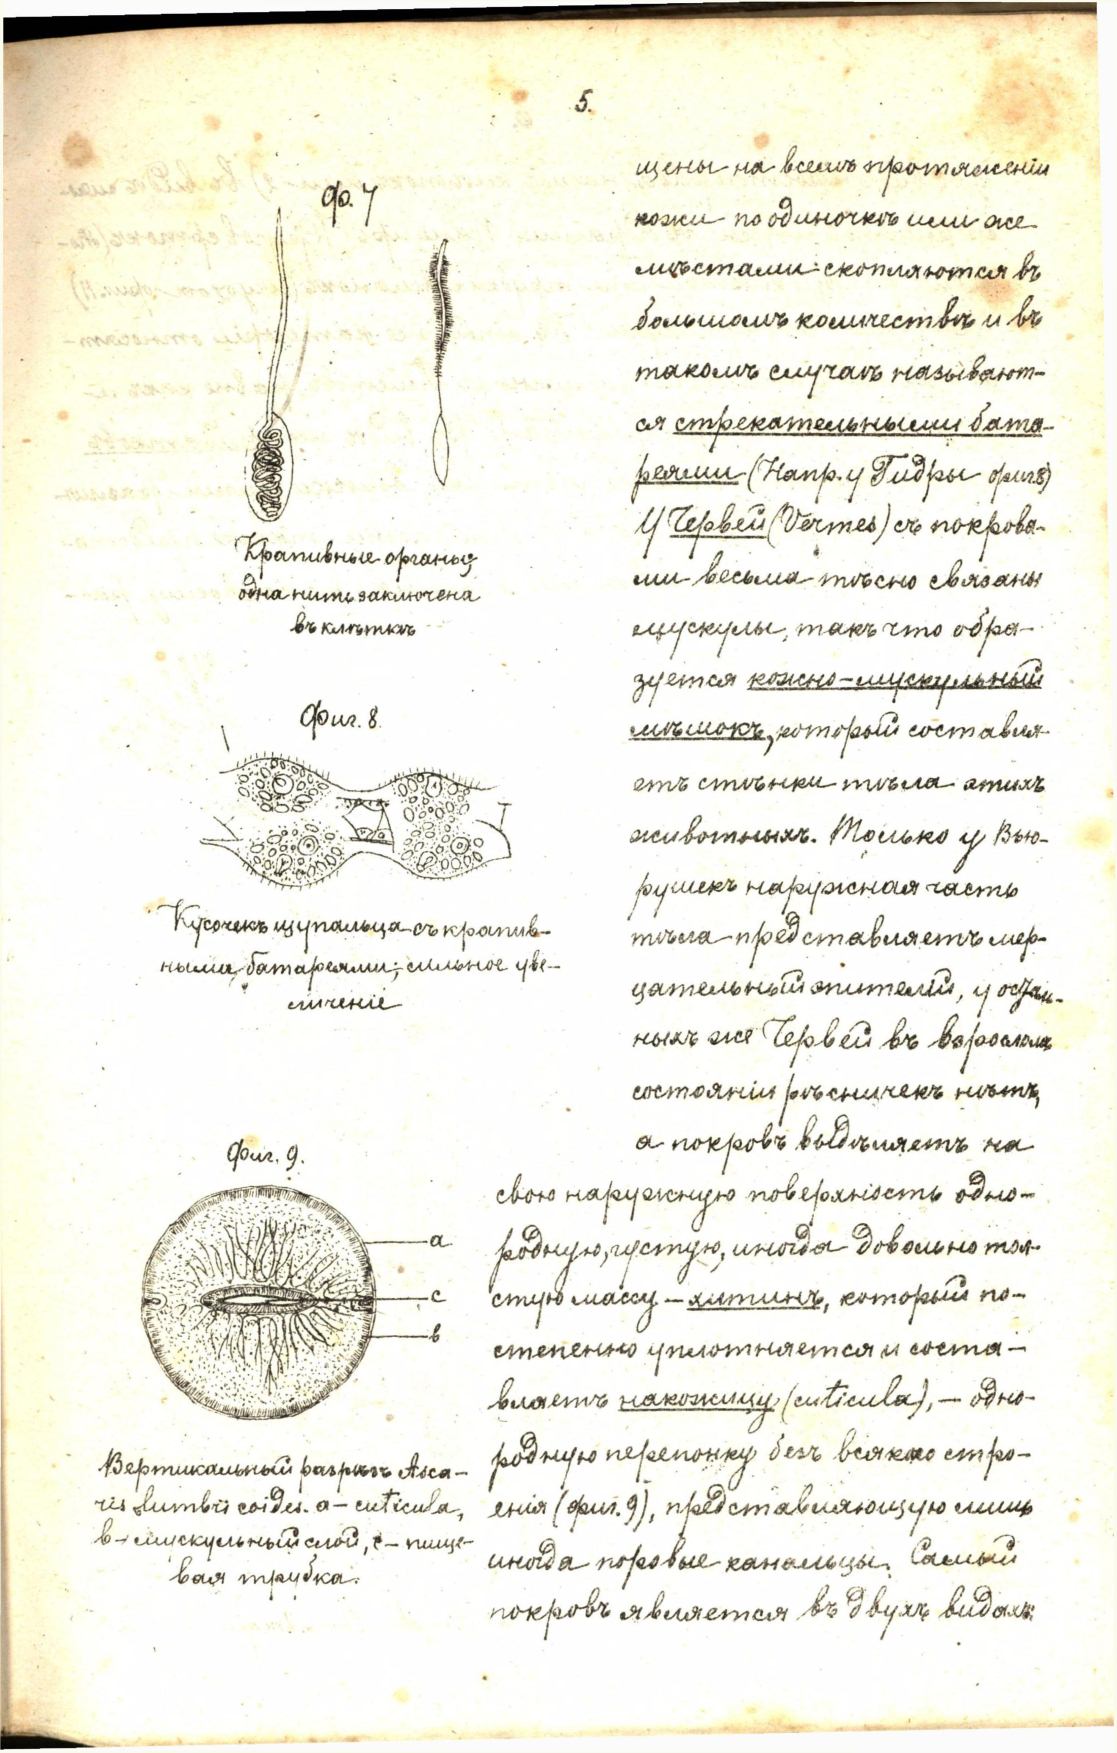 5.
Ф. 7
Крапивные органы;
одна нить заключена
въ клѣткѣ
Фиг. 8.
Кусочекъ щупальца съ крапив-
ными батареями; сильное уве-
личеніе
Фиг. 9.
а
с
в
Вертикальный разрѣзъ Asca-
ris lumbricoides. а – cuticula,
в – мускульный слой, с – пище-
вая трубка.
щены на всемъ протяженіи
кожи по одиночкѣ или же
мѣстами скопляются въ
большомъ количествѣ и въ
такомъ случаѣ называют-
ся стрекательными бата-
реями (Напр. у Гидры фиг 8)
У Червей (Vermes) съ покрова-
ми весьма тѣсно связаны
мускулы, такъ что обра-
зуется кожно-мускульный
мѣшокъ, который составля-
етъ стѣнки тѣла этихъ
животныхъ. Только у Вью-
рушекъ наружная часть
тѣла представляетъ мер-
цательный эпителій, у осталь-
ныхъ же Червей въ взросломъ
состояніи рѣсничекъ нѣтъ,
а покровъ выдѣляетъ на
свою наружную поверхность одно-
родную, густую, иногда довольно тол-
стую массу – хитинъ, который по-
степенно уплотняется и соста-
вляетъ накожицу (cuticula), – одно-
родную перепонку безъ всякаго стро-
енія (фиг. 9), представляющую лишь
иногда поровые канальцы. Самый
покровъ является въ двухъ видахъ: